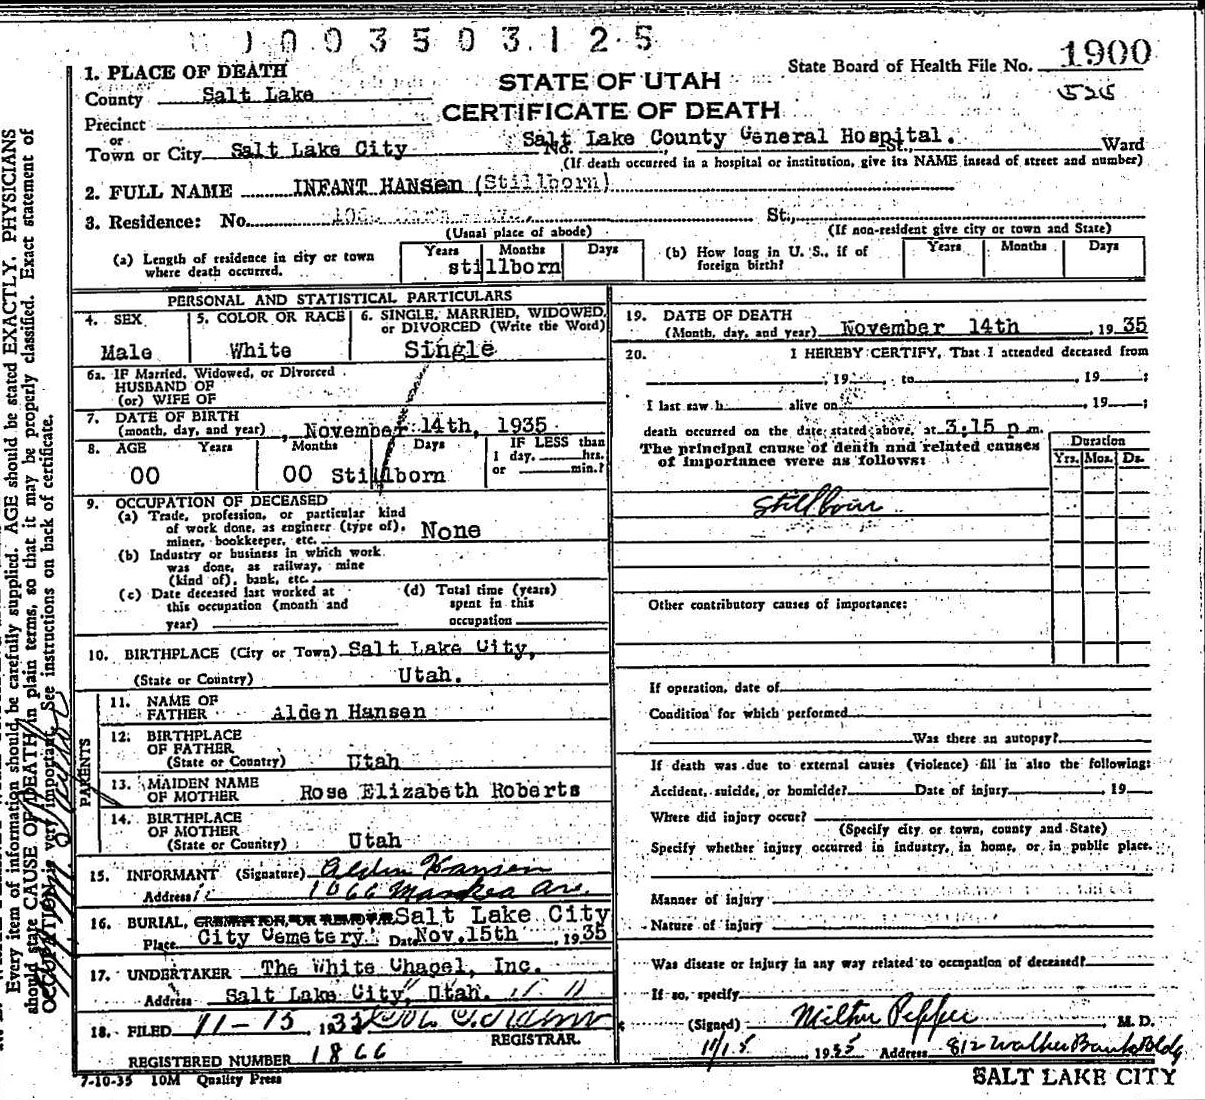 0 0 3 5 0 3 1 2 5
1. PLACE OF DEATH
STATE OF UTAH
State Board of Health File No. 1900
County Salt Lake
CERTIFICATE OF DEATH
525
Precinct
or
Town or City Salt Lake City No. Salt Lake County General Hospital. St., Ward
(If death occurred in a hospital or institution, give its NAME instead of street and number)
2. FULL NAME INFANT HANSEN (Stillborn)
3. Residence: No. St.,
(Usual place of abode) (If non-resident give city or town and State)
(a) Length of residence in city or town where death occurred. Years Months Days stillborn
(b) How long in U. S., if of foreign birth? Years Months Days
PERSONAL AND STATISTICAL PARTICULARS
4. SEX Male
5. COLOR OR RACE White
6. SINGLE, MARRIED, WIDOWED, or DIVORCED (Write the Word) Single
6a. IF Married, Widowed, or Divorced
HUSBAND OF
(or) WIFE OF
7. DATE OF BIRTH
(month, day, and year) November 14th, 1935
8. AGE Years Months Days IF LESS than
1 day, hrs.
or min.?
00 00 Stillborn
9. OCCUPATION OF DECEASED
(a) Trade, profession, or particular kind
of work done, as engineer (type of),
miner, bookkeeper, etc. None
(b) Industry or business in which work
was done, as railway, mine
(kind of), bank, etc.
(c) Date deceased last worked at
this occupation (month and
year)
(d) Total time (years)
spent in this
occupation
10. BIRTHPLACE (City or Town) Salt Lake City,
(State or Country) Utah.
PARENTS
11. NAME OF
FATHER Alden Hansen
12. BIRTHPLACE
OF FATHER
(State or Country) Utah
13. MAIDEN NAME
OF MOTHER Rose Elizabeth Roberts
14. BIRTHPLACE
OF MOTHER
(State or Country) Utah
15. INFORMANT (Signature) Alden Hansen
Address 1066 Ave.
16. BURIAL, CREMATION, OR REMOVAL Salt Lake City
Place City Cemetery Date Nov. 15th, 1935
17. UNDERTAKER The White Chapel, Inc.
Address Salt Lake City, Utah.
18. FILED 11-15 1935
REGISTRAR.
REGISTERED NUMBER 1866
7-10-35 10M Quality Press
19. DATE OF DEATH
(Month, day, and year) November 14th, 1935
20. I HEREBY CERTIFY, That I attended deceased from
, 19 , to , 19 ;
I last saw h alive on , 19 ;
death occurred on the date stated above, at 3:15 p m.
The principal cause of death and related causes
of importance were as follows:
Duration
Yrs. Mos. Ds.
Stillborn
Other contributory causes of importance:
If operation, date of
Condition for which performed
Was there an autopsy?
If death was due to external causes (violence) fill in also the following:
Accident, suicide, or homicide? Date of injury 19
Where did injury occur?
(Specify city or town, county and State)
Specify whether injury occurred in industry, in home, or in public place.
Manner of injury
Nature of injury
Was disease or injury in any way related to occupation of deceased?
If so, specify
(Signed) Milton Pepper M. D.
11/15 1935 Address 812 Walker Bank Bldg
SALT LAKE CITY
Every item of information should be carefully supplied. AGE should be stated EXACTLY. PHYSICIANS
should state CAUSE OF DEATH in plain terms, so that it may be properly classified. Exact statement of
OCCUPATION is very important. See instructions on back of certificate.